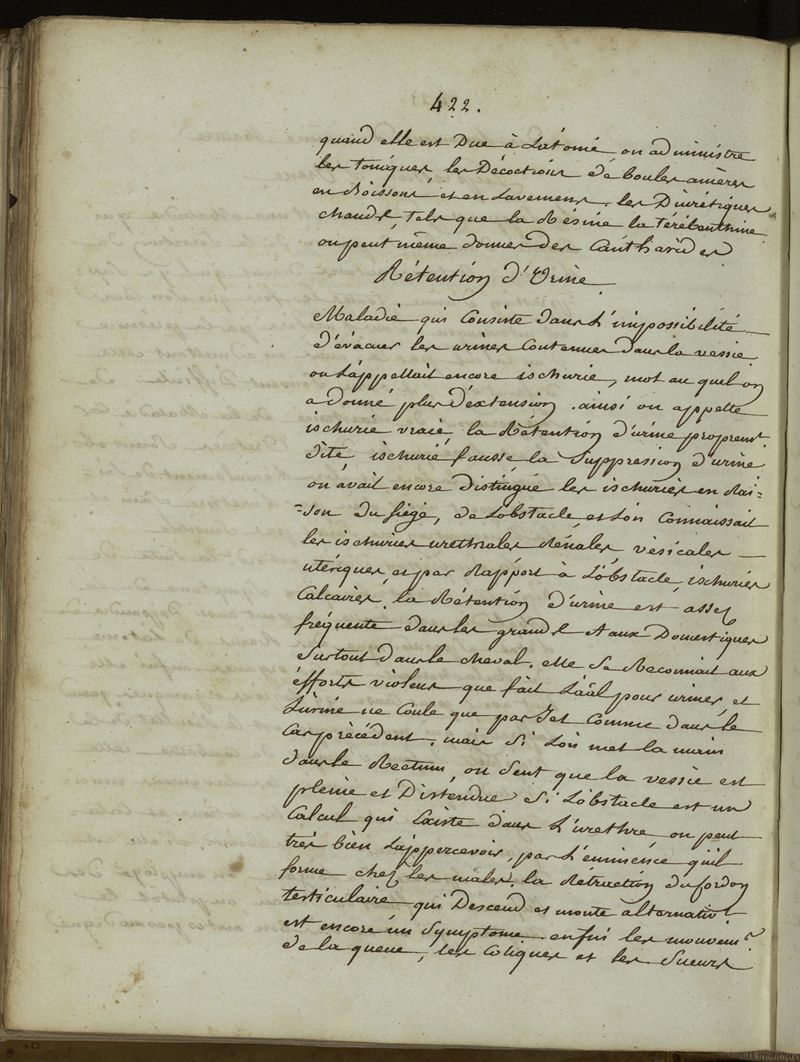 422.
quand elle est Due à L'atonie on administre
les toniques, les Décoctions de boules amères
en Boissons et en Lavemens, les Diurétiques
chauds, tels que la Résine la térébenthine
on peut même donner des Cantharides
Rétention d'Urine
Maladie qui Consiste dans L'impossibilité
d'évacuer les urines Contenues dans la vessie
on L'appellait encore ischurie, mot au quel on
a donné plus d'extension. ainsi on appelle
ischurie vraie, la Rétention d'urine proprem.t
dite, ischurie fausse la Suppression d'urine
on avait encore distingué les ischuries en Rai=
=son du siége, de L'obstacle et L'on Connaissait
les ischuries urethrales Rénales, vésicales
utériques, et par Rapport à L'obstacle, ischuries
Calcaires, la Rétention d'urine est assez
fréquente dans les grands A aux Domestiques
Surtout dans le cheval. elle Se Reconnait aux
éfforts violens que fait L'aal pour uriner, et
L'urine ne Coule que par Jet Comme dans le
Cas précédent. mais Si L'on met la main
dans le Rectum, on Sent que la vessie est
pleine et Distendue Si L'obstacle est un
Calcul qui Existe dans L'urethre on peut
trés bien L'appercevoir, par L'eminence qu'il
forme chez les mâles. la Rétraction du Cordon
testiculaire qui Descend et monte alternativ.t
est encore un Symptome. enfin les mouvem.s
de la queue, les Coliques et les Sueurs